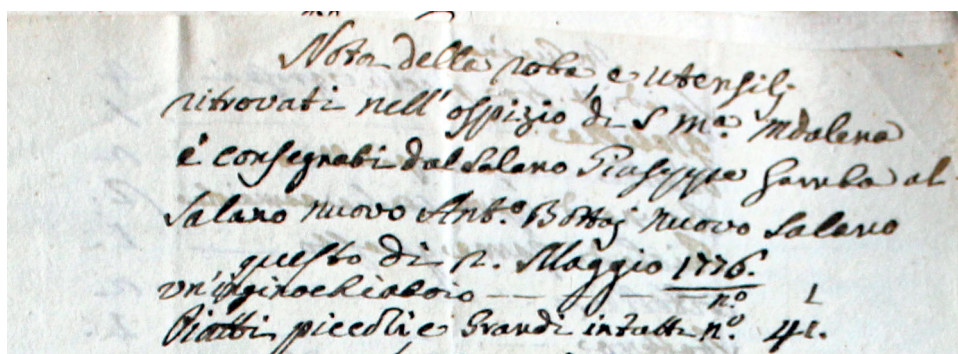 Nota della roba, e utensilj
ritrovati nell' ospizio di S. M.ª Mdalena
è consegnati dal Salano Giuseppe Gamba al
Salano nuovo Ant.º Bottaj nuovo Salano
questo di Maggio 1776.
un'inginochiatoio — — nº 1
Piatti piccoli e Grandi intatti nº. 41.